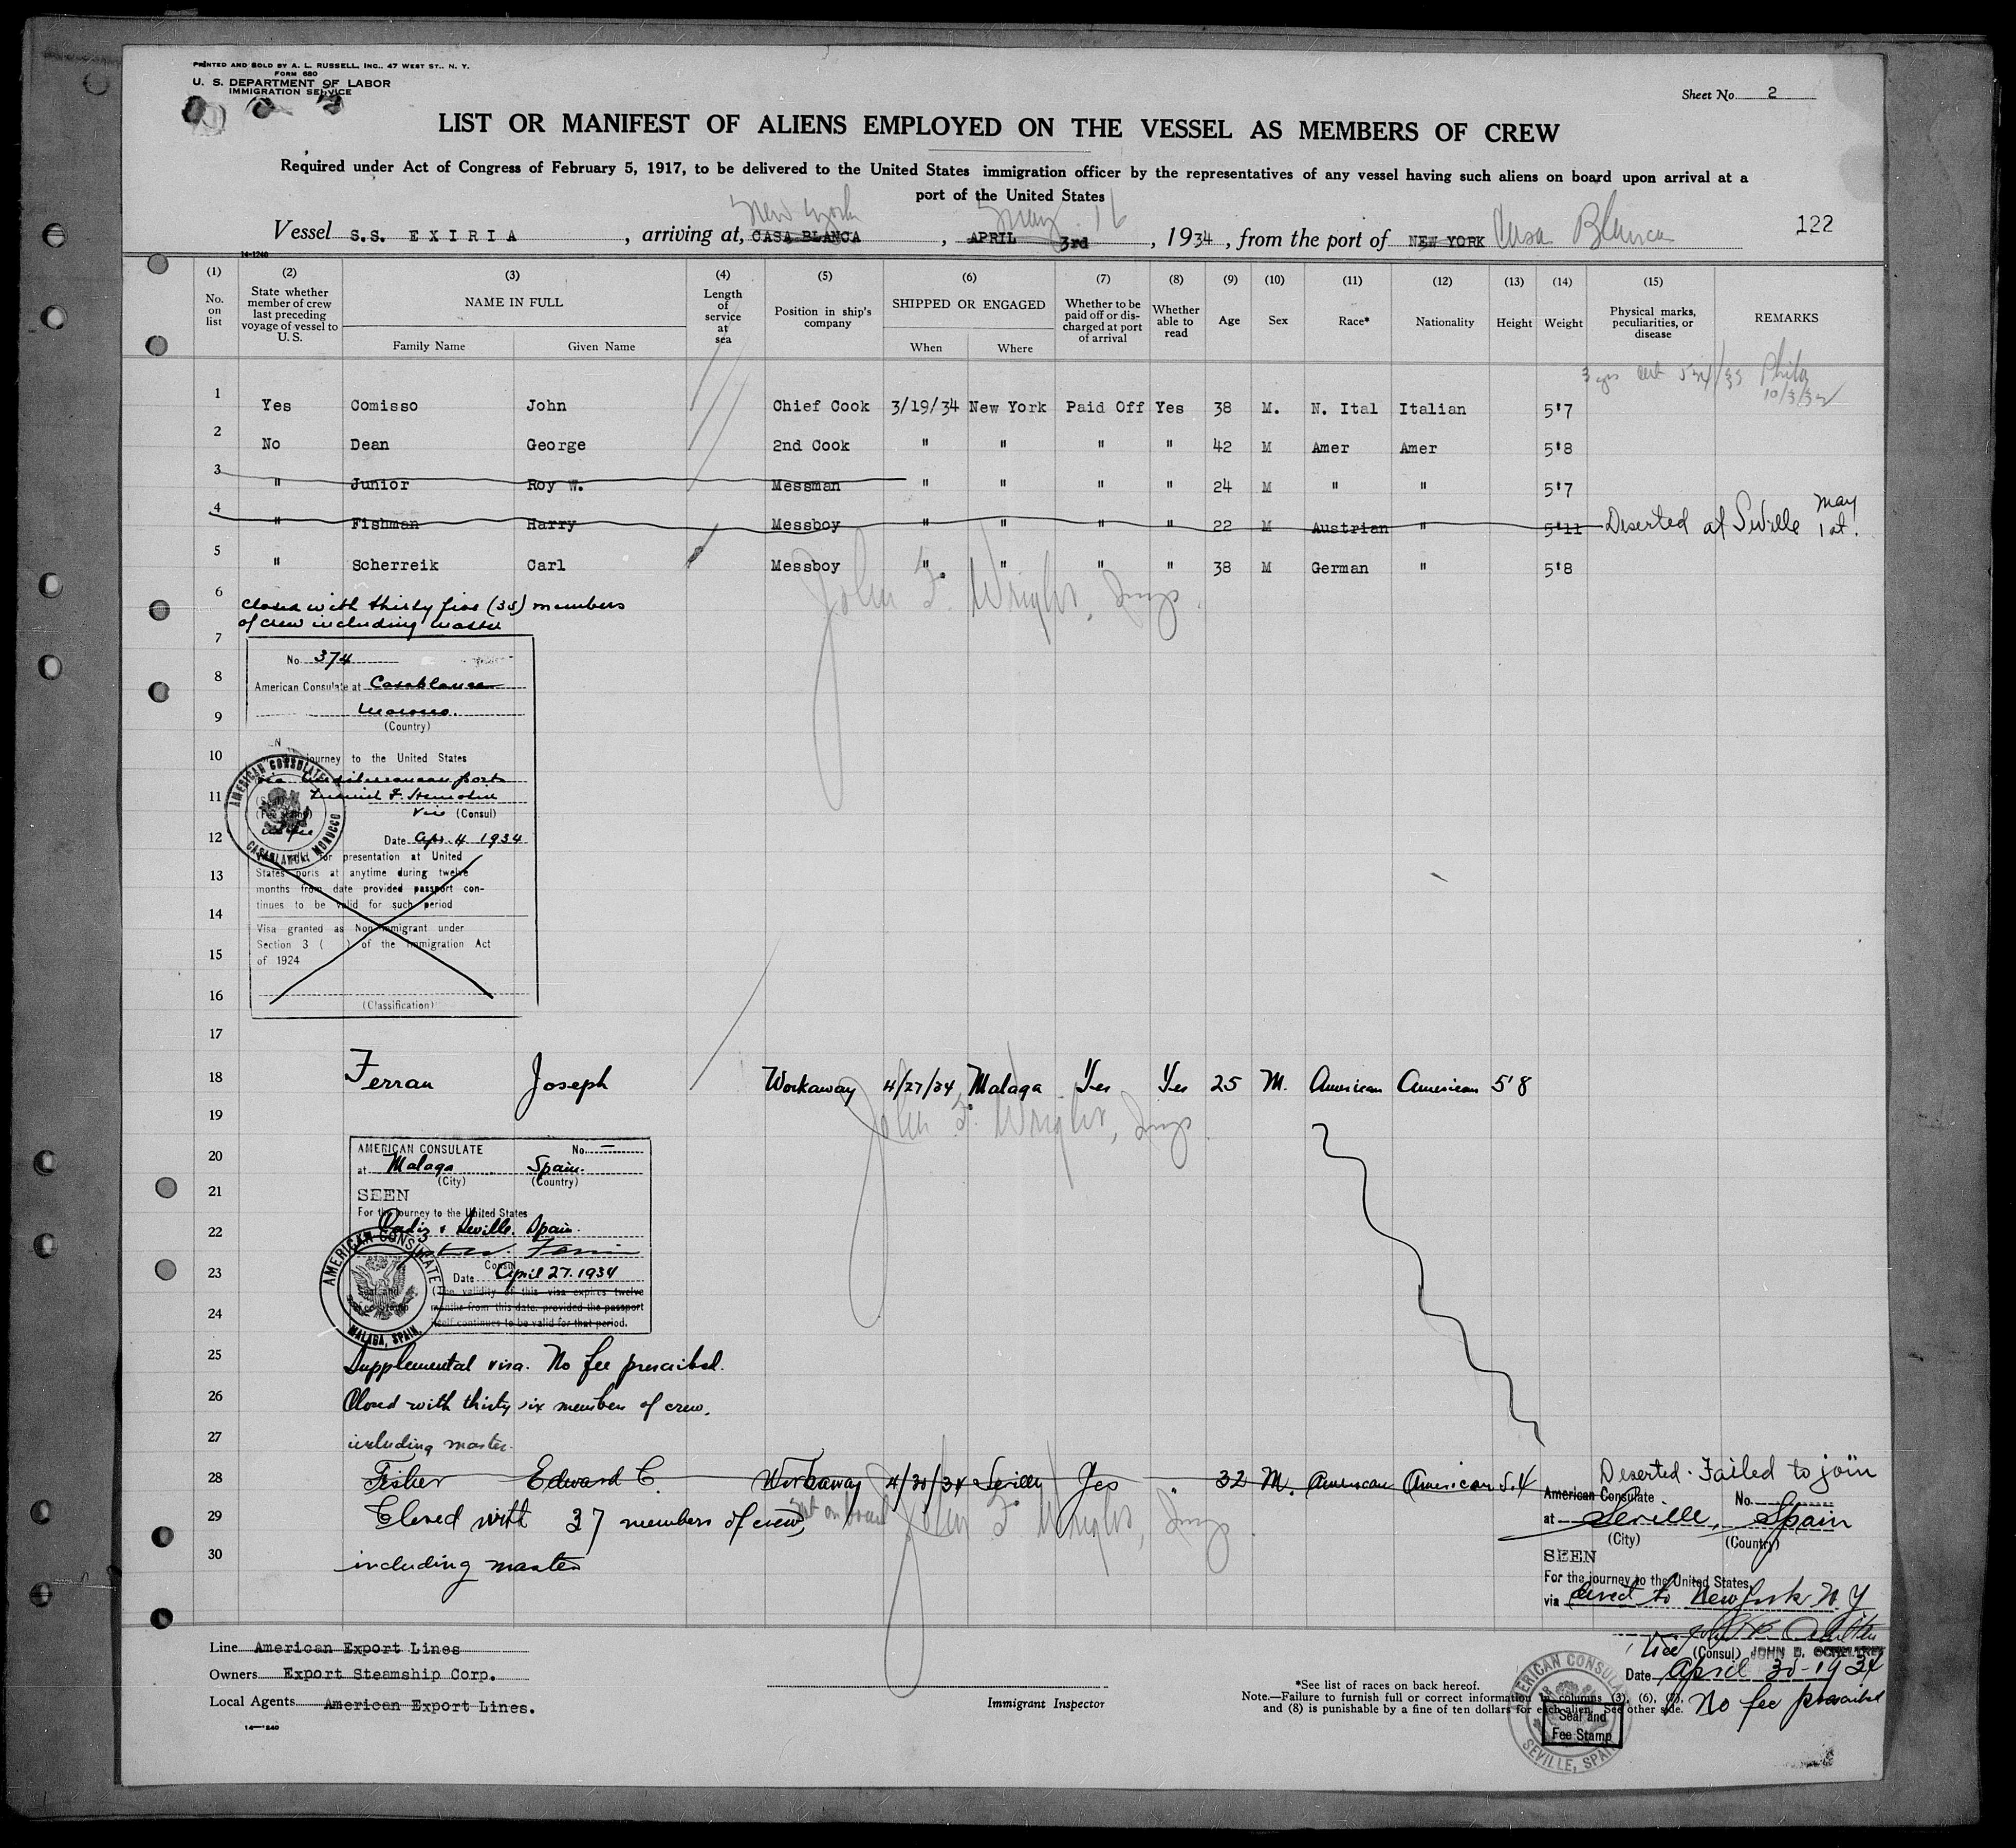 PRINTED AND SOLD BY A. L. RUSSELL, INC., 47 WEST ST., N. Y.
FORM 680
U. S. DEPARTMENT OF LABOR
IMMIGRATION SERVICE
Sheet No. 2
LIST OR MANIFEST OF ALIENS EMPLOYED ON THE VESSEL AS MEMBERS OF CREW
Required under Act of Congress of February 5, 1917, to be delivered to the United States immigration officer by the representatives of any vessel having such aliens on board upon arrival at a
port of the United States
New York May 16
Vessel S.S. EXIRIA, arriving at, CASA BLANCA, APRIL 3rd, 1934, from the port of NEW YORK Casa Blanca
122
14-1240
(1) No. on list
(2) State whether member of crew last preceding voyage of vessel to U. S.
(3) NAME IN FULL Family Name Given Name
(4) Length of service at sea
(5) Position in ship's company
(6) SHIPPED OR ENGAGED When Where
(7) Whether to be paid off or discharged at port of arrival
(8) Whether able to read
(9) Age
(10) Sex
(11) Race*
(12) Nationality
(13) Height
(14) Weight
(15) Physical marks, peculiarities, or disease
REMARKS
3 yrs Phila
10/3/32
1 Yes Comisso John Chief Cook 3/19/34 New York Paid Off Yes 38 M. N. Ital Italian 5'7
2 No Dean George 2nd Cook " " " " 42 M Amer Amer 5'8
3 " Junior Roy W. Messman " " " " 24 M " " 5'7
4 " Fishman Harry Messboy " " " " 22 M Austrian " 5'11 Deserted at Seville May 1st.
5 " Scherreik Carl Messboy " " " " 38 M German " 5'8
John F. Wright, Insp
6
Closed with thirty five (35) members
of crew including master
7
No. 374
8
American Consulate at Casablanca
9
Morocco.
(Country)
10
journey to the United States
via Mediterranean ports
11
Vice (Consul)
12
Date Apr. 4 1934
AMERICAN CONSULATE
CASABLANCA, MOROCCO
for presentation at United
13
States ports at anytime during twelve
months from date provided passport con-
tinues to be valid for such period
14
Visa granted as Non-immigrant under
Section 3 ( ) of the Immigration Act
15
of 1924
16
(Classification)
17
18 Ferran Joseph Workaway 4/27/34 Malaga Yes Yes 25 M. American American 5'8
19
John F. Wright, Insp
20
AMERICAN CONSULATE No. —
at Malaga Spain.
(City) (Country)
21
SEEN
For the journey to the United States
22
Cadiz & Seville. Spain.
Consul
23
Date April 27. 1934
(The validity of this visa expires twelve
24
months from this date. provided the passport
itself continues to be valid for that period.
AMERICAN CONSULATE
MALAGA, SPAIN.
25
Supplemental visa. No fee prescribed.
26
Closed with thirty six members of crew.
27
including master.
28 Fisher Edward C. Workaway 4/30/34 Seville Yes " 32 M. American American 5.4 Deserted. Failed to join
29
Closed with 37 members of crew,
not on board
John F. Wright, Insp
30
including master
American Consulate No.
at Seville, Spain
(City) (Country)
SEEN
For the journey to the United States
via direct to New York N.Y
Vice (Consul)
Date April 30-1934
No fee prescribed
AMERICAN CONSULATE
Seal and
Fee Stamp
SEVILLE, SPAIN
Line American Export Lines
Owners Export Steamship Corp.
Local Agents American Export Lines.
14—1240
Immigrant Inspector
*See list of races on back hereof.
Note.—Failure to furnish full or correct information in columns (3), (6), (7),
and (8) is punishable by a fine of ten dollars for each alien. See other side.